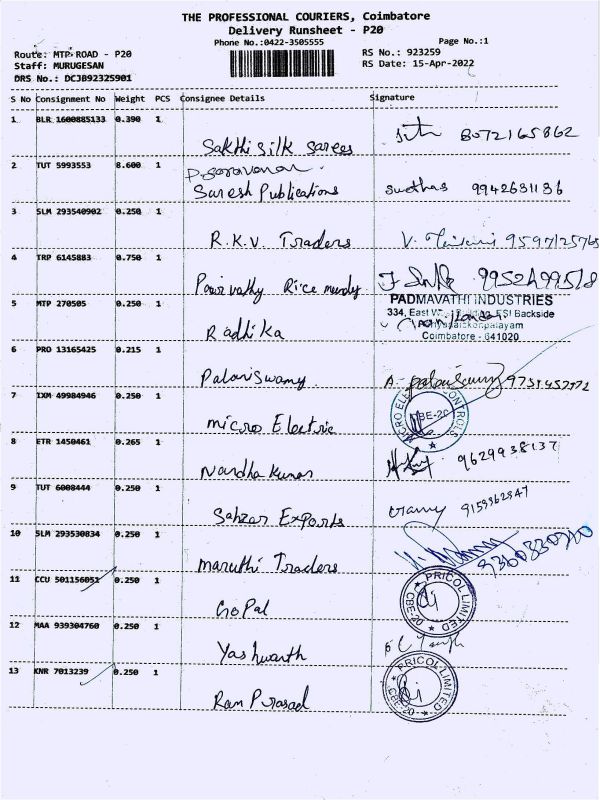 THE PROFESSIONAL COURIERS, Coimbatore
Delivery Runsheet - P20
Phone No.:0422-3505555 Page No.:1
Route: MTP ROAD - P20 RS No.: 923259
Staff: MURUGESAN RS Date: 15-Apr-2022
DRS No.: DCJB92325901
S No Consignment No Weight PCS Consignee Details Signature
1 BLR 1600885133 0.390 1
Sakthi Silk Sarees 8072165862
2 TUT 5993553 8.600 1 P. Saravanan
Suresh Publications Sudhas 9942631186
3 SLM 293540902 0.250 1
R.K.V. Traders V. 9597125765
4 TRP 6145883 0.750 1
Parvathy Rice mundy
5 MTP 270505 0.250 1 PADMAVATHI INDUSTRIES
334, East Building, ESI Backside
Radhika Coimbatore - 641020
6 PRO 13165425 0.215 1
Palaniswamy A. Palaniswamy
7 IXM 49984946 0.250 1 CBE-20
micro Electric
8 ETR 1450461 0.265 1
Nandhakumar 9629938137
9 TUT 6008444 0.250 1
Sahzar Exports 9159362847
10 SLM 293530834 0.250 1
Maruthi Traders
11 CCU 501156051 0.250 1 PRICOL LIMITED
CBE-20
GoPal
12 MAA 939304760 0.250 1
Yashwanth
13 KNR 7013239 0.250 1 PRICOL LIMITED
CBE-20
Ram Prasad